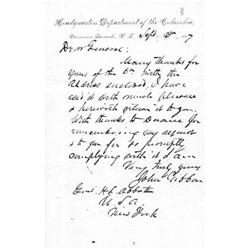 8
Headquarters Department of the Columbia,
Vancouver Barracks, W. T. Sept. 1887
Dear General:
Many thanks for
yours of the 6th with the
address enclosed. I have
read it with much pleasure
& herewith return it to you.
With thanks to
remembering my request
& to you for so promptly
complying with it I am
Very truly yours
John Gibbon
Genl. H. L. Abbot
U.S.A.
New York